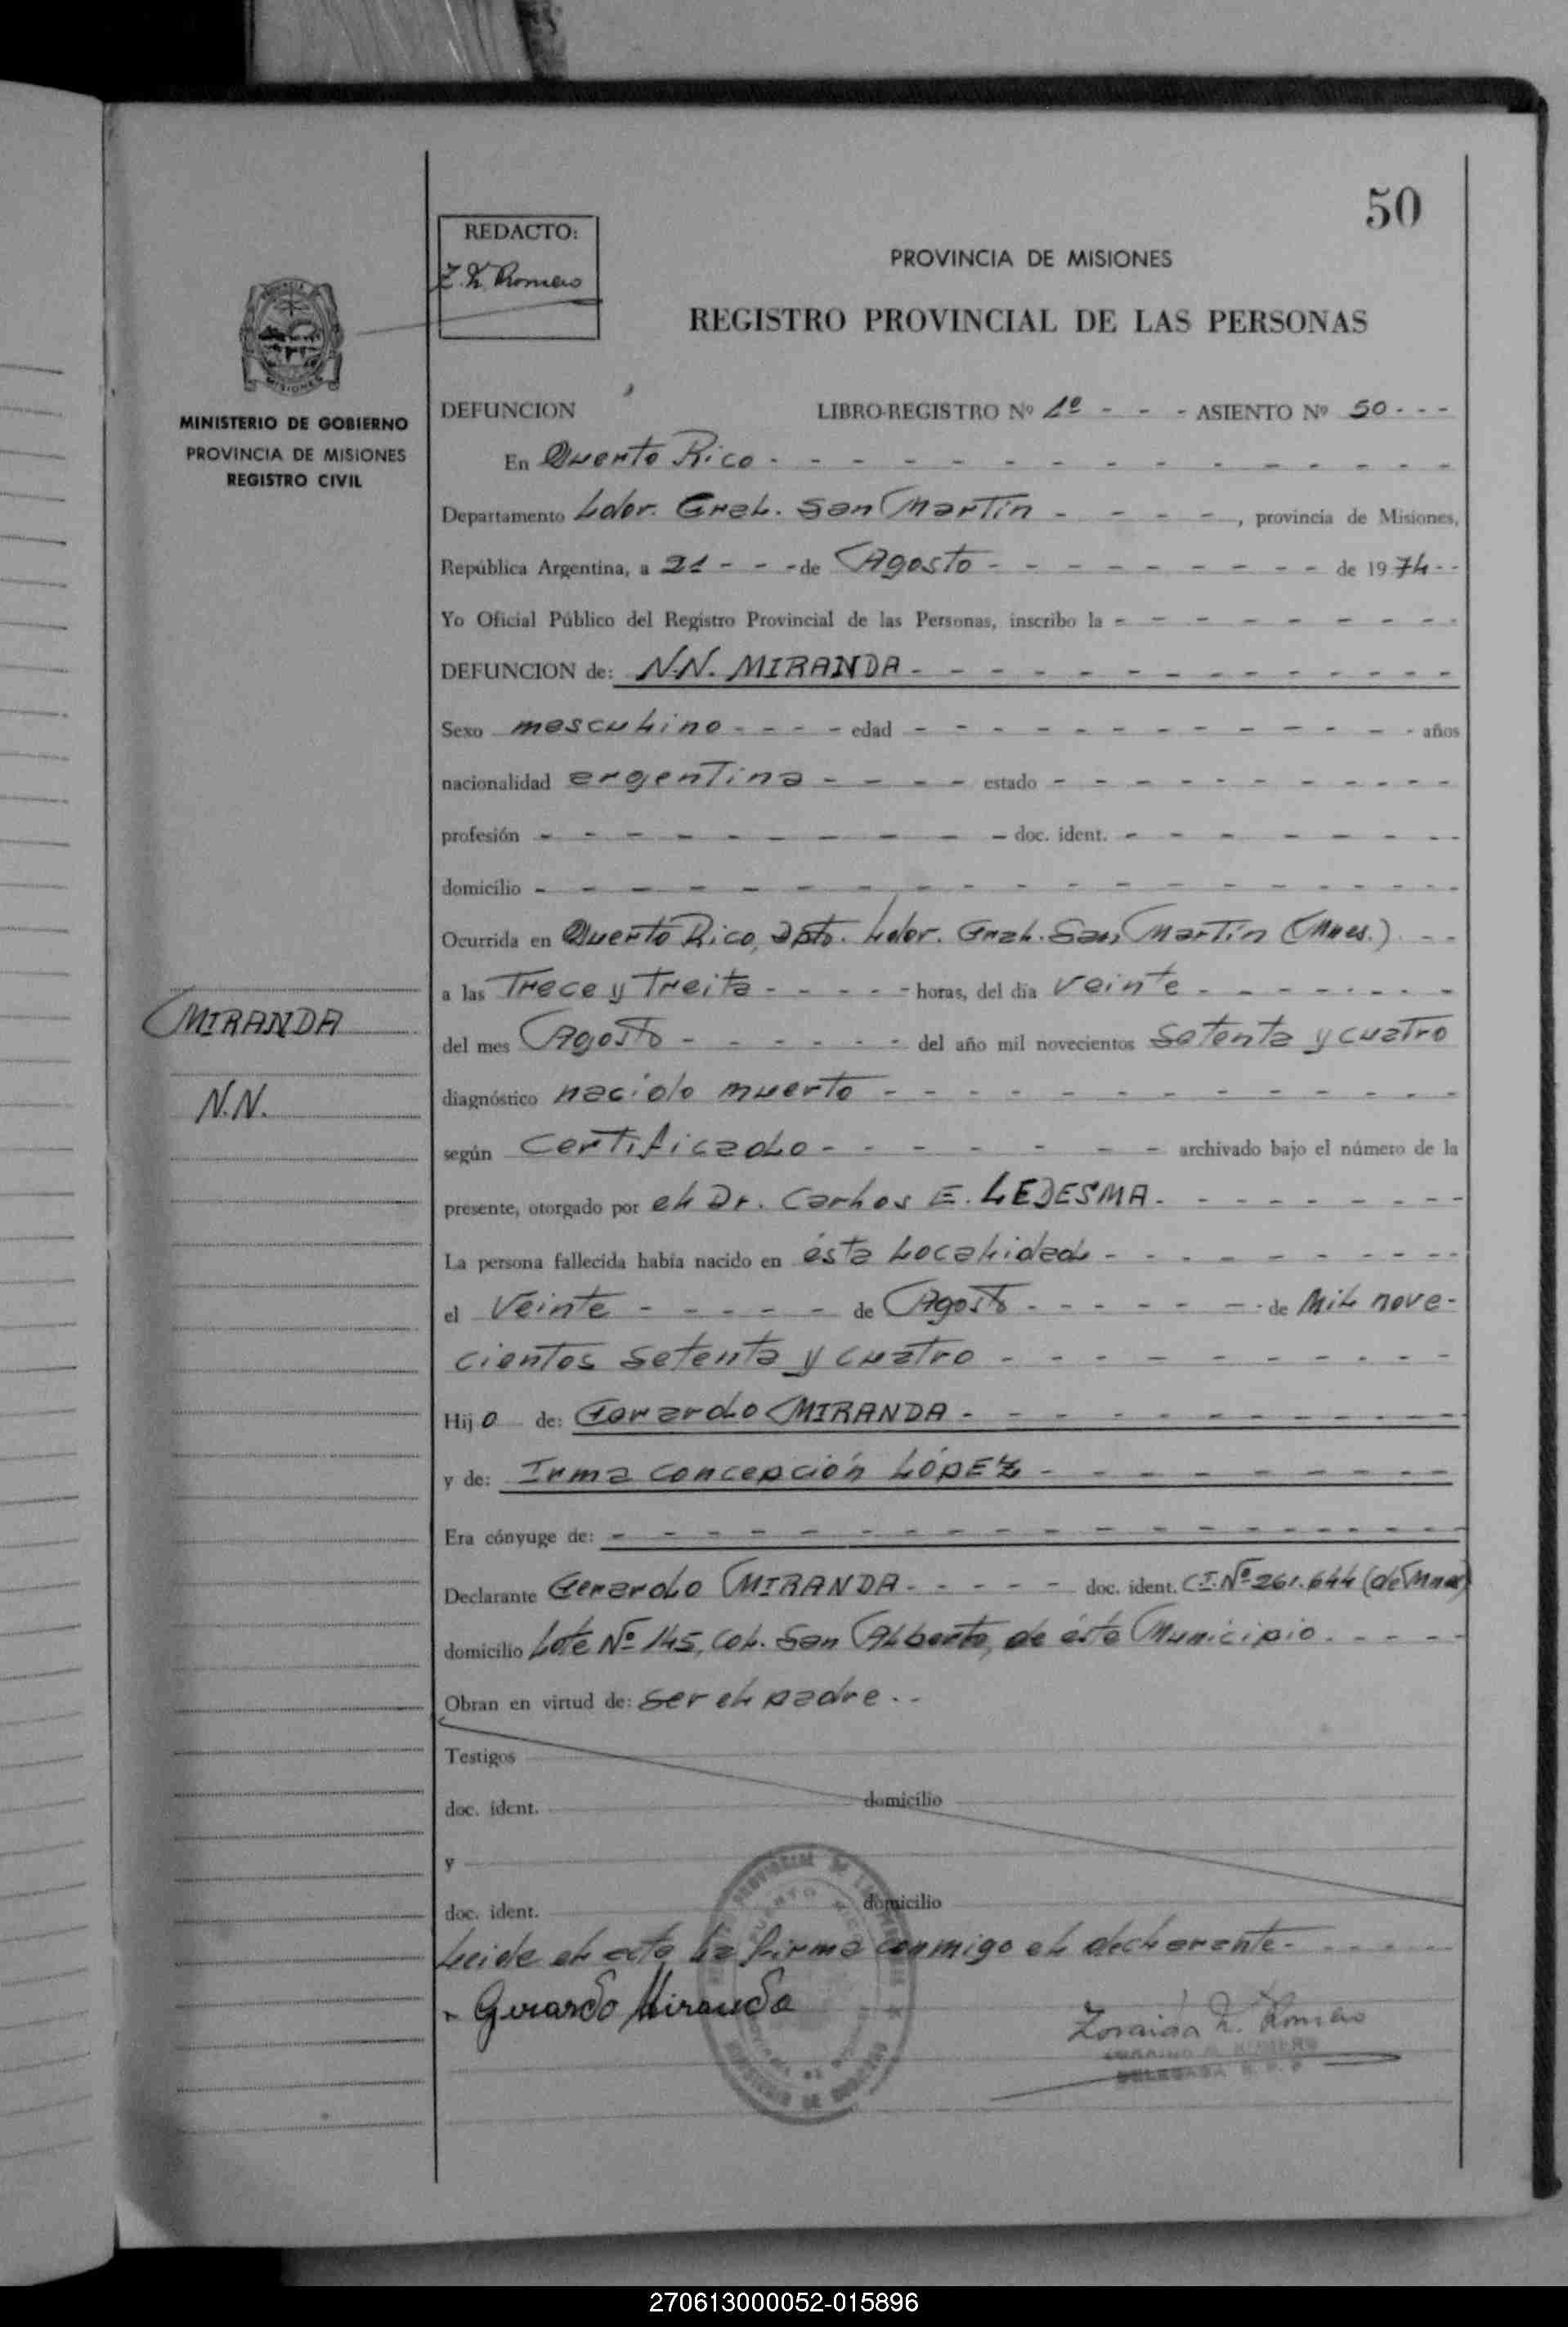 50
REDACTO:
Z. N. Romero
PROVINCIA DE MISIONES
REGISTRO PROVINCIAL DE LAS PERSONAS
MINISTERIO DE GOBIERNO
PROVINCIA DE MISIONES
REGISTRO CIVIL
DEFUNCION LIBRO-REGISTRO Nº 1º - - - ASIENTO Nº 50 - - -
En Puerto Rico - - - - - - - - - - - - - -
Departamento Ldor. Gral. San Martín - - - -, provincia de Misiones,
República Argentina, a 21 - - - de Agosto - - - - - - - - de 1974 - -
Yo Oficial Público del Registro Provincial de las Personas, inscribo la - - - - - - - -
DEFUNCION de: N.N. MIRANDA - - - - - - - - - - -
Sexo masculino - - - - edad - - - - - - - - - - - - años
nacionalidad argentina - - - - estado - - - - - - - - - -
profesión - - - - - - - - - - doc. ident. - - - - - - - -
domicilio - - - - - - - - - - - - - - - - - -
Ocurrida en Puerto Rico, Dpto. Ldor. Gral. San Martín (Mnes.) - -
a las Trece y Treita - - - - - horas, del día veinte - - - - - - -
del mes Agosto - - - - - - del año mil novecientos setenta y cuatro
diagnóstico nacido muerto - - - - - - - - - - - -
según certificado - - - - - - - archivado bajo el número de la
presente, otorgado por el Dr. Carlos E. LEDESMA - - - - - - - -
La persona fallecida había nacido en ésta localidad - - - - - - - - -
el Veinte - - - - - de Agosto - - - - - - de Mil nove-
cientos setenta y cuatro - - - - - - - - - -
Hijo de: Gerardo MIRANDA - - - - - - - - - - -
y de: Irma Concepción LÓPEZ - - - - - - - - -
Era cónyuge de: - - - - - - - - - - - - - - - - -
Declarante Gerardo MIRANDA - - - - - doc. ident. C.I. Nº 261.644 (de Mnes)
domicilio Lote Nº 145, Col. San Alberto, de éste Municipio - - - - -
Obran en virtud de: ser el padre - -
Testigos
doc. ident. domicilio
y
doc. ident. domicilio
Leida el acta la firma conmigo el declarante - - - - - -
Gerardo Miranda
Zoraida N. Romero
DELEGADA R. P. P
MIRANDA
N.N.
270613000052-015896